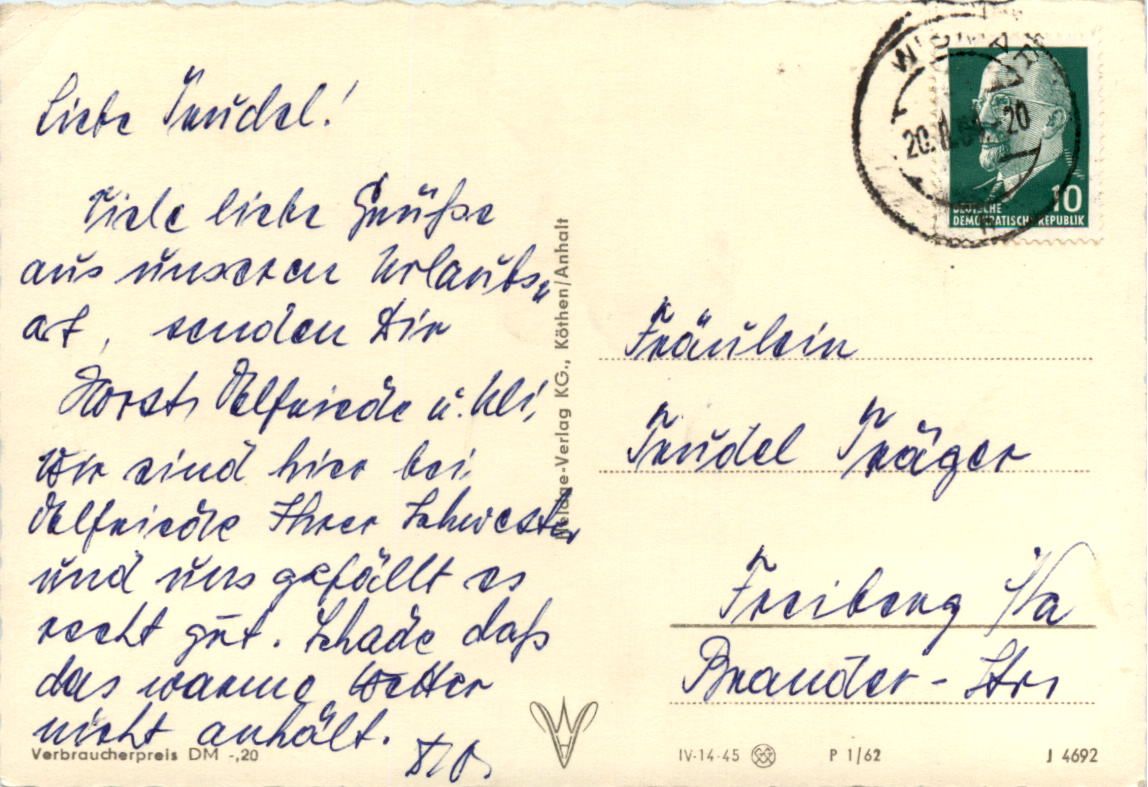 Liebe Trudel!
Viele liebe Grüße
aus unseren Urlaubs„
ort, senden Dir
Horst, Elfriede u. Uli,
Wir sind hier bei
Elfriede Ihrer Schwester
und uns gefällt es
recht gut. Schade daß
das warme Wetter
nicht anhält.
Verbraucherpreis DM -,20
-Verlag KG., Köthen/Anhalt
WISMAR
20
10
DEUTSCHE
DEMOKRATISCHE REPUBLIK
Fräulein
Trudel Träger
Freiberg i/Sa
Brander-Str.
IV-14-45 P 1/62 J 4692